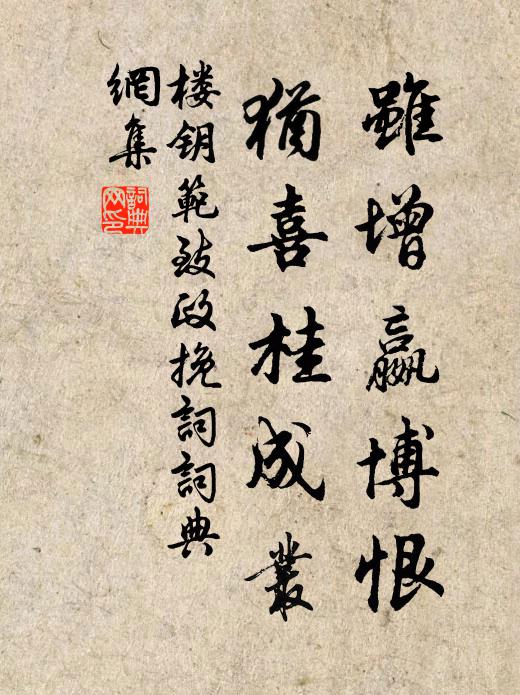 雖增嬴博恨
猶喜桂成叢
楼钥範致政挽詞詞典
網集
詞典
网印